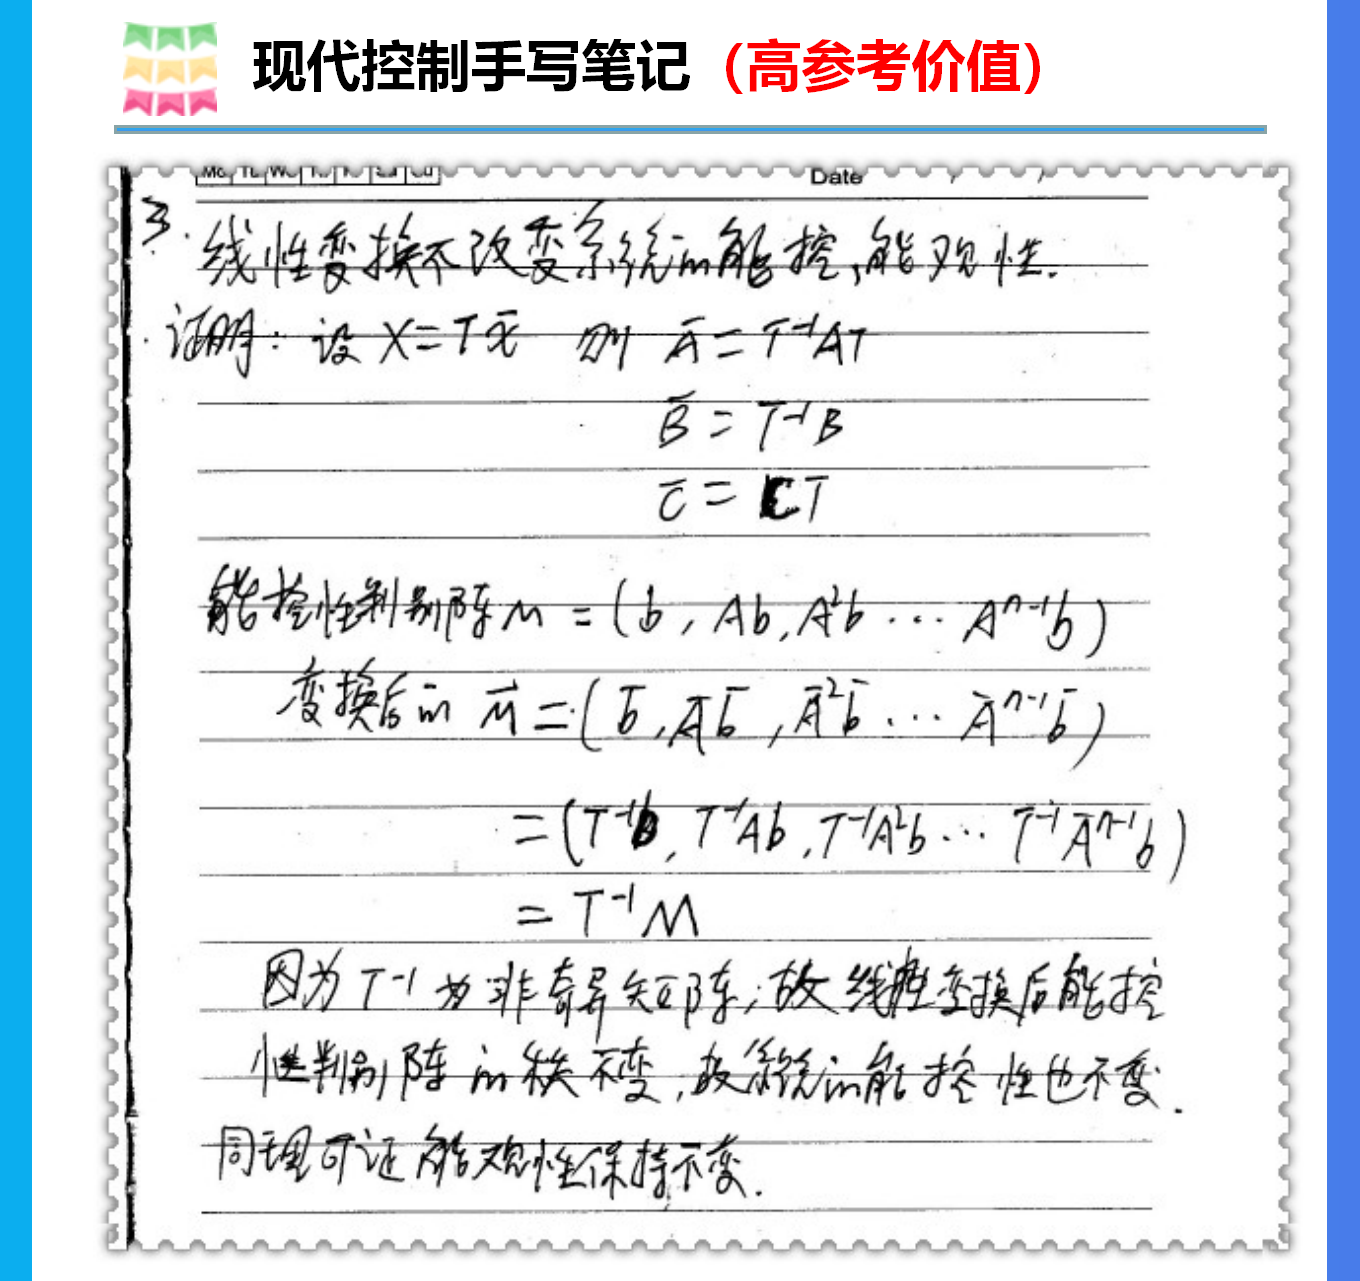 现代控制手写笔记（高参考价值）
Date / /
3. 线性变换不改变系统的能控、能观性.
证明：设 X=Tx̄ 则 Ā=T⁻¹AT
B̄=T⁻¹B
C̄=CT
能控性判别阵M=(b, Ab, A²b … Aⁿ⁻¹b)
变换后的 M̄=(b̄, Āb̄, Ā²b̄ … Āⁿ⁻¹b̄)
=(T⁻¹b, T⁻¹Ab, T⁻¹A²b … T⁻¹Āⁿ⁻¹b)
=T⁻¹M
因为T⁻¹为非奇异矩阵,故线性变换后能控
性判别阵的秩不变,故系统的能控性也不变.
同理可证能观性保持不变.